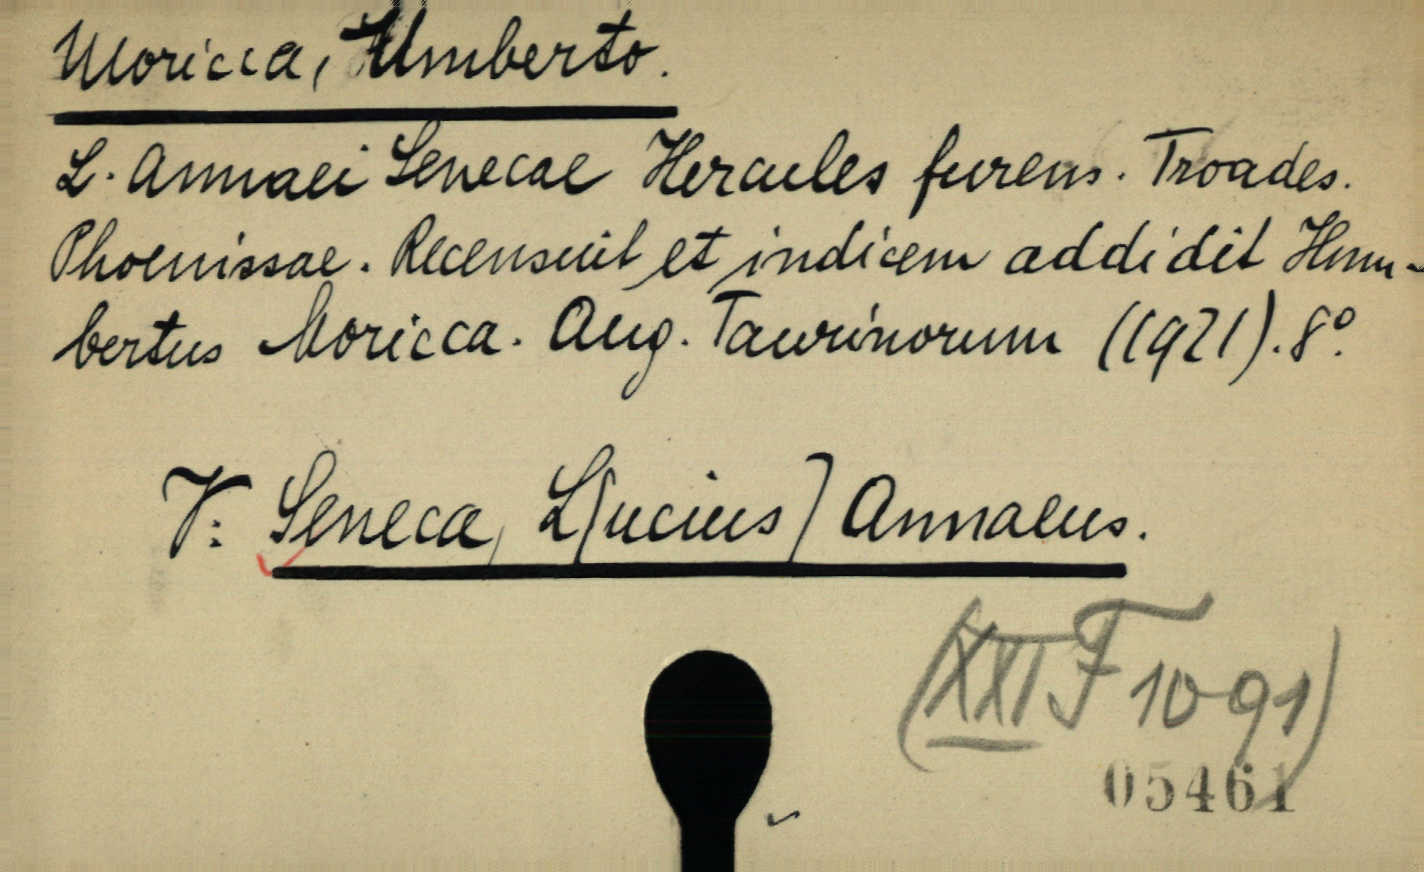 Moricca, Umberto.
L. Annaei Senecae Hercules furens. Troades.
Phoenissae. Recensuit et indicem addidit Hum-
bertus Moricca. Aug. Taurinorum (1921). 8º.
V: Seneca, L(ucius) Annaeus.
(XXI F 10 91)
05461